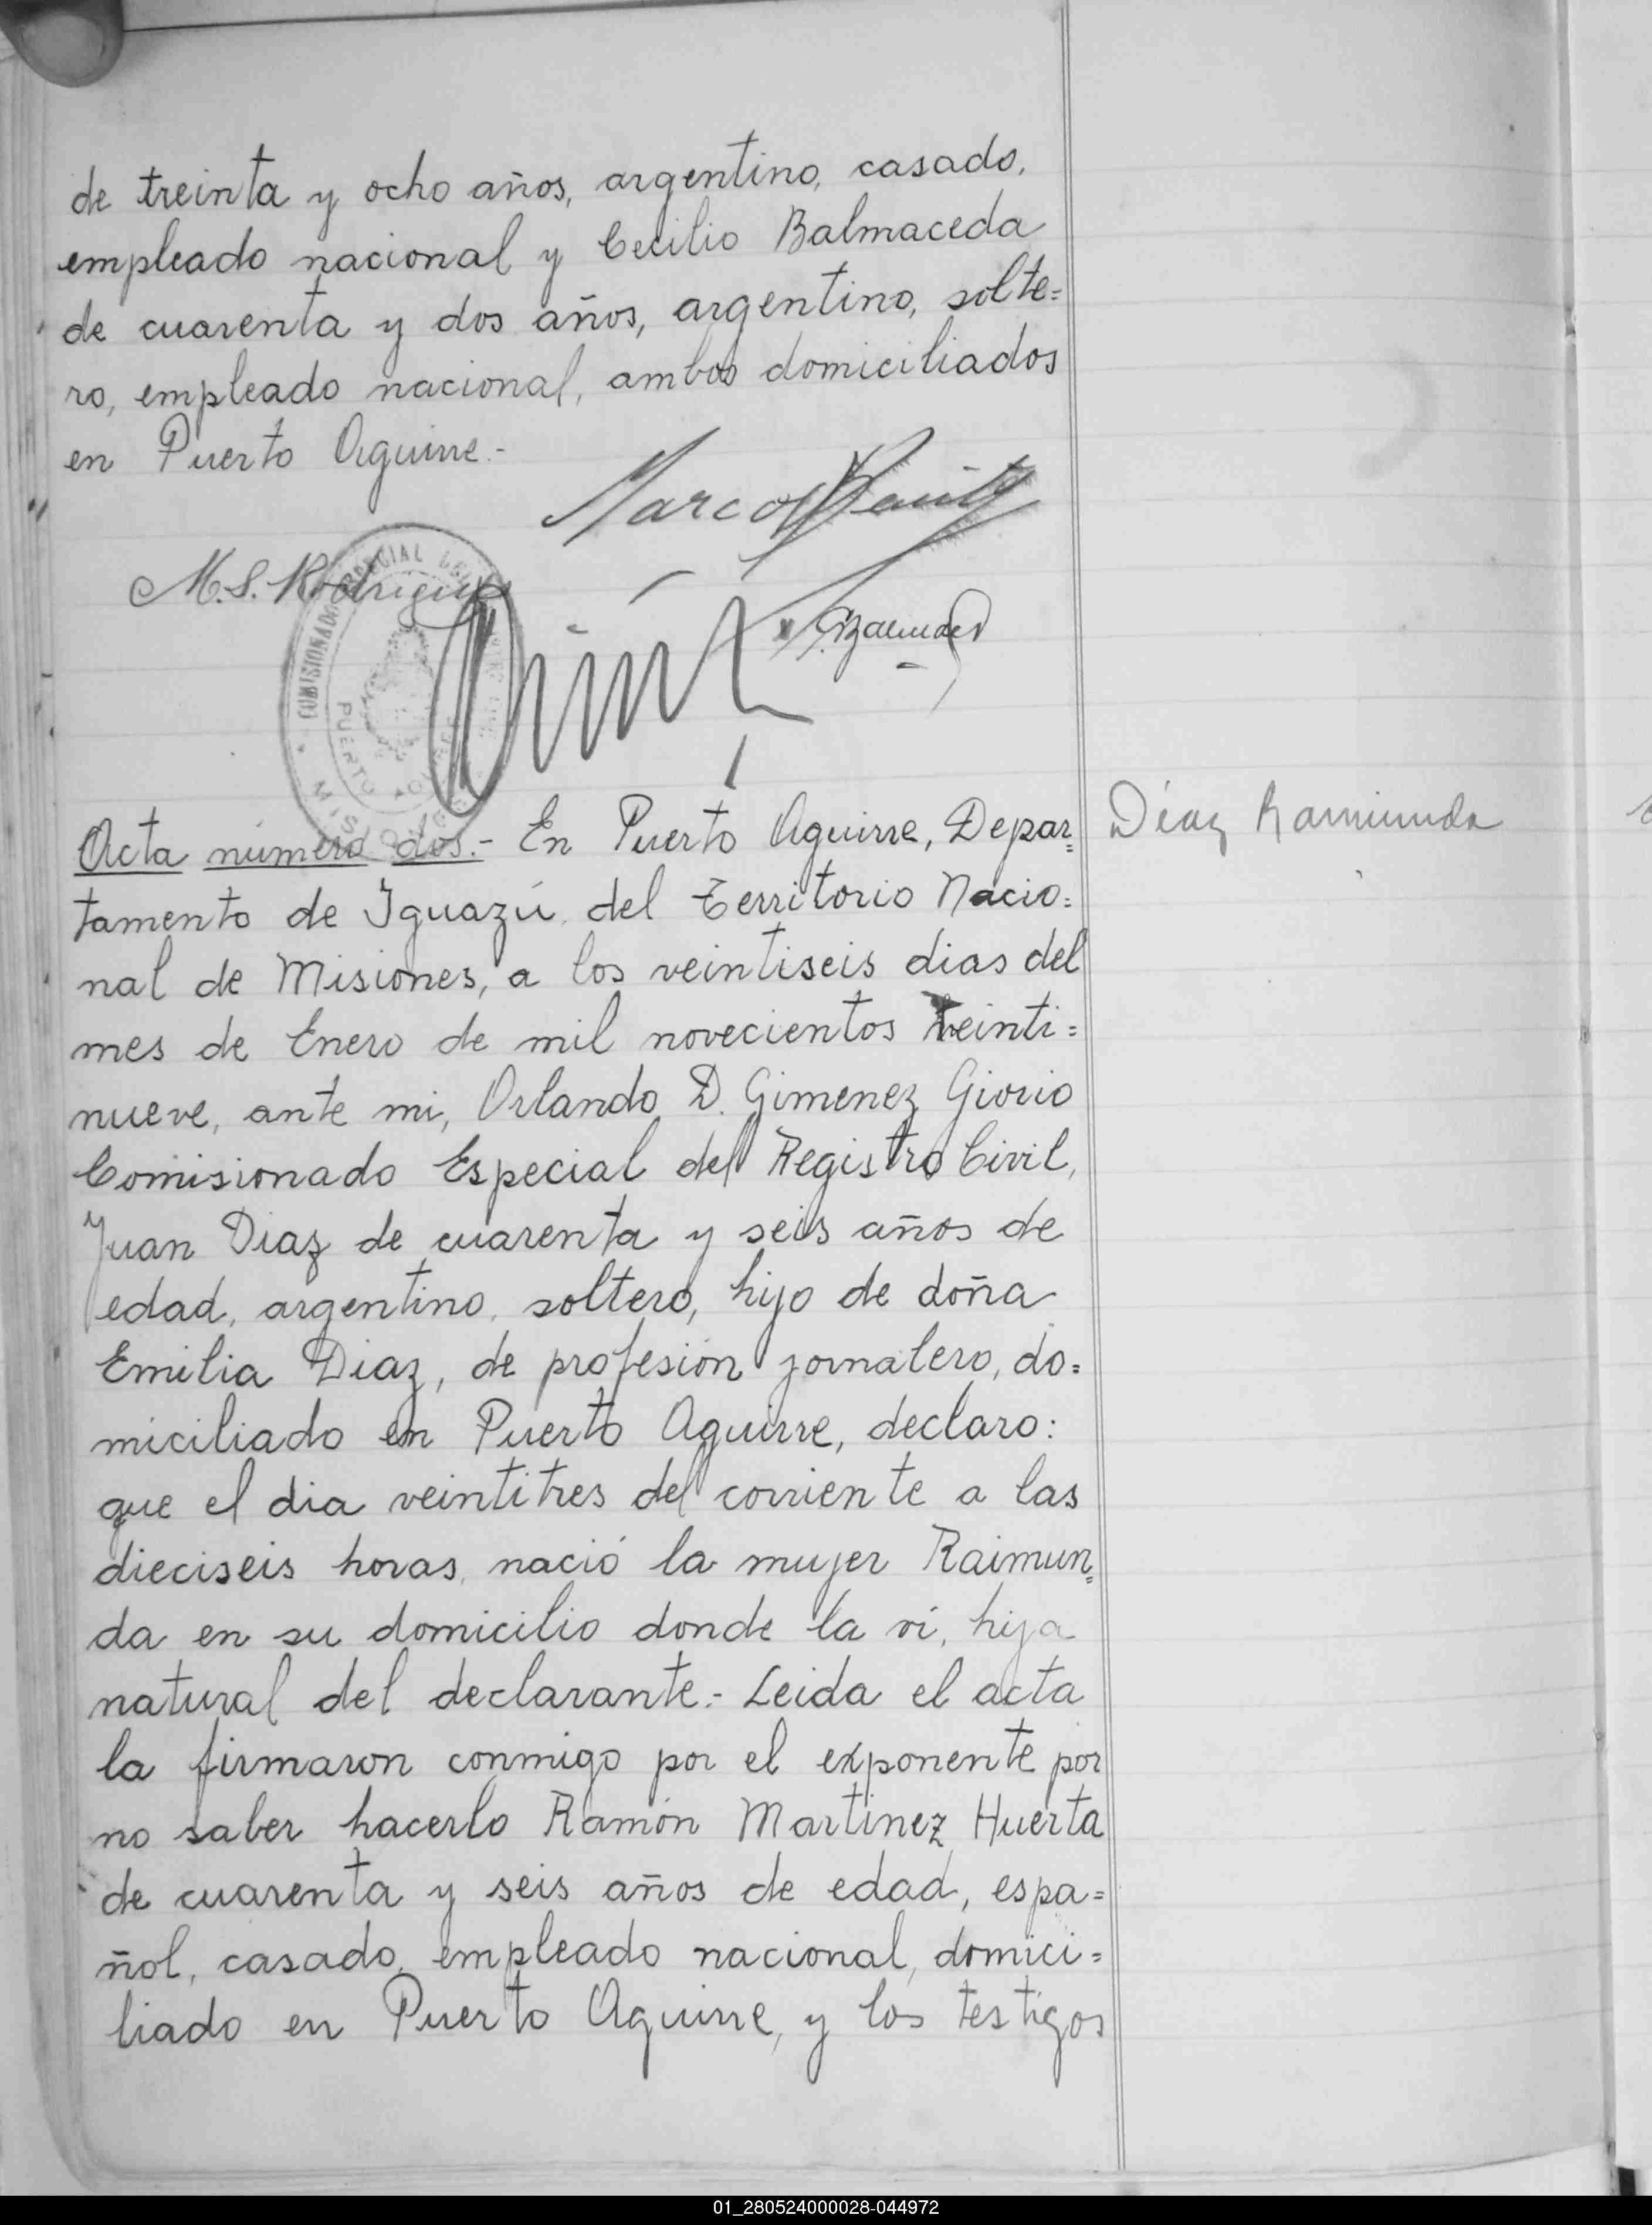 de treinta y ocho años, argentino, casado,
empleado nacional y Cecilio Balmaceda
de cuarenta y dos años, argentino, solte=
ro, empleado nacional, ambos domiciliados
en Puerto Aguirre.-
Marcos
M.S. Rodriguez
COMISIONADO
PUERTO
MISIONES
Acta número dos.- En Puerto Aguirre, Depar=
Diaz Raimunda
tamento de Iguazú, del Territorio Nacio=
nal de Misiones, a los veintiseis dias del
mes de Enero de mil novecientos veinti=
nueve, ante mi, Orlando D. Gimenez Giorio
Comisionado Especial del Registro Civil,
Juan Diaz de cuarenta y seis años de
edad, argentino, soltero, hijo de doña
Emilia Diaz, de profesión jornalero, do=
miciliado en Puerto Aguirre, declaro:
que el dia veintitres del corriente a las
dieciseis horas, nació la mujer Raimun=
da en su domicilio donde la vi, hija
natural del declarante.- Leida el acta
la firmaron conmigo por el exponente por
no saber hacerlo Ramón Martinez Huerta
de cuarenta y seis años de edad, espa=
ñol, casado, empleado nacional, domici=
liado en Puerto Aguirre, y los testigos
01_280524000028-044972